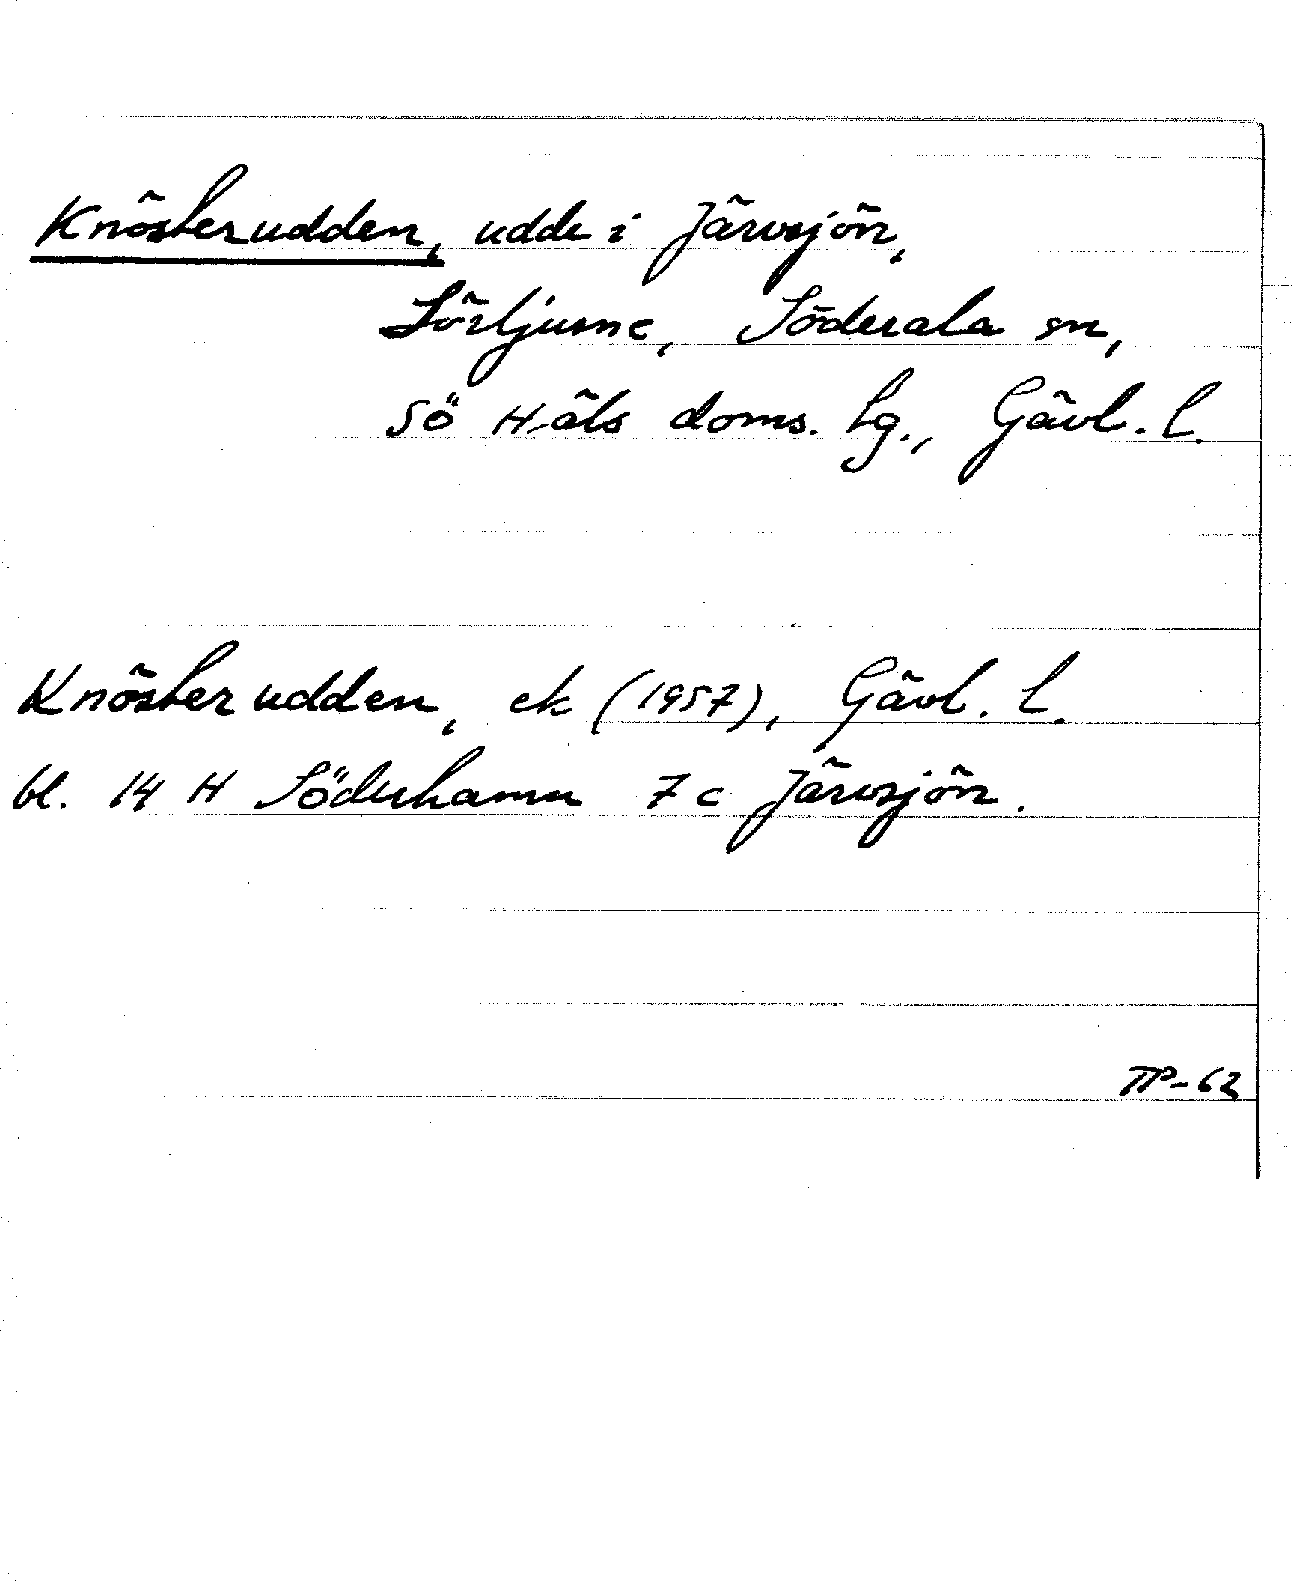 Knösterudden, udde i Järvsjön,
Sörljusne, Söderala sn,
Sö H-äls doms. hg., Gävl. l.
Knösterudden, ek (1957), Gävl. l.
bl. 14 H Söderhamn 7 c Järvsjön.
TP-62